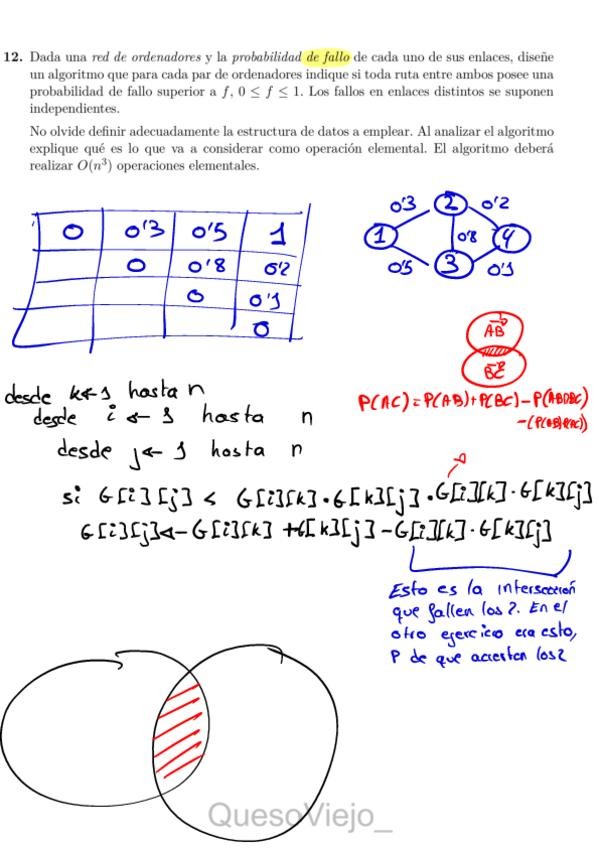 12. Dada una red de ordenadores y la probabilidad de fallo de cada uno de sus enlaces, diseñe
un algoritmo que para cada par de ordenadores indique si toda ruta entre ambos posee una
probabilidad de fallo superior a f, 0 ≤ f ≤ 1. Los fallos en enlaces distintos se suponen
independientes.
No olvide definir adecuadamente la estructura de datos a emplear. Al analizar el algoritmo
explique qué es lo que va a considerar como operación elemental. El algoritmo deberá
realizar O(n³) operaciones elementales.
0 0'3 0'5 1
0 0'8 0'2
0 0'1
0
0'3 2 0'2
1 0'8 4
0'5 3 0'1
AB
BC
P(AC)=P(AB)+P(BC)-P(AB∩BC)
desde k←1 hasta n
desde i ← 1 hasta n
desde j← 1 hasta n
si G[i][j] < G[i][k]·G[k][j]·G[i][k]·G[k][j]
G[i][j]←G[i][k]+G[k][j]-G[i][k]·G[k][j]
Esto es la intersección
que fallen los 2. En el
otro ejercicio era esto,
P de que acierten los 2
QuesoViejo_